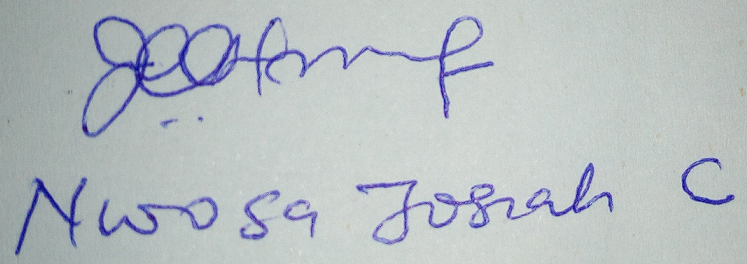 Nwosa Josiah C